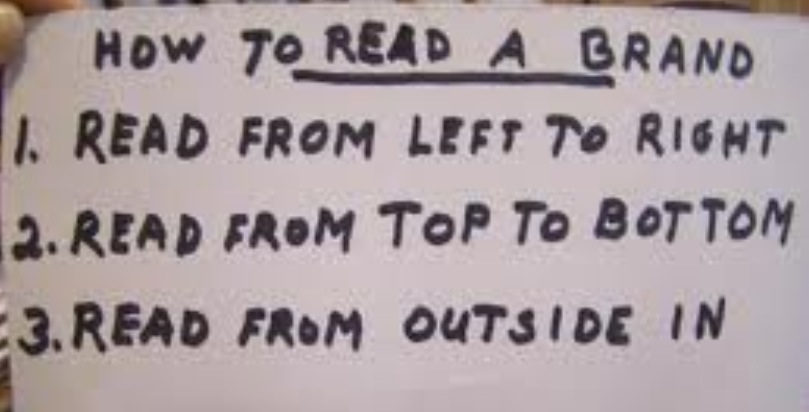 HOW TO READ A BRAND
1. READ FROM LEFT TO RIGHT
2. READ FROM TOP TO BOTTOM
3. READ FROM OUTSIDE IN